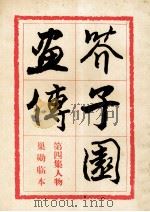 芥子園
畫傳
第四集人物
巢勋临本